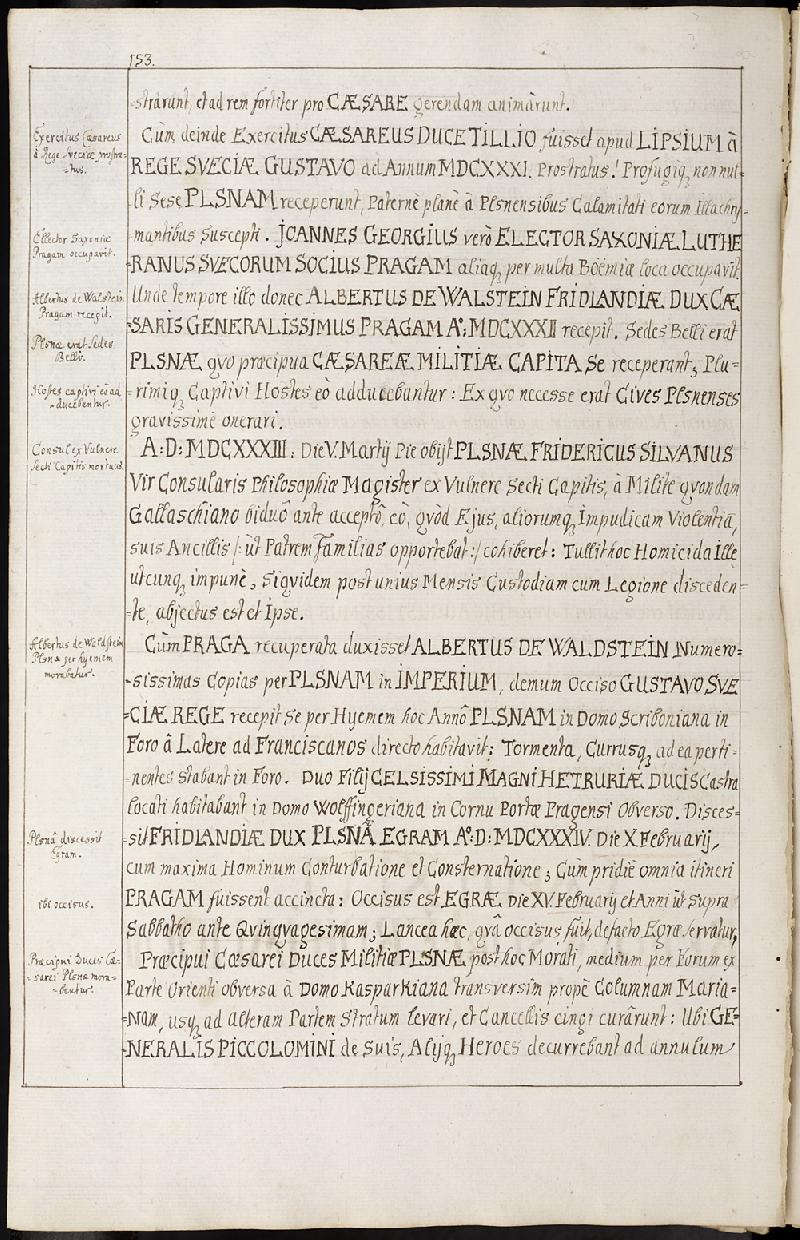 153.
-strârunt, et ad rem fortiter pro CÆSARE gerendam animârunt.
Exercitus Cæsareus
à Rege Sveciæ prostra-
-tus.
Cùm deinde Exercitus CÆSAREUS DUCE TILLIO fuisset apud LIPSIUM à
REGE SVECIÆ GUSTAVO ad Annum MDCXXXI. Prostratus! Profugiq, non nul-
-li Sese PLSNAM receperunt, Paternè planè à Plsnensibus Calamitati eorum Illachry-
Ellector Saxoniæ
Pragam occupavit.
-mantibus Suscepti. JOANNES GEORGIUS verò ELECTOR SAXONIÆ LUTHE
-RANUS SVECORUM SOCIUS PRAGAM aliaq, per multa Böemiæ loca occupavit
Albertus de Walstein
Pragam recepit.
Unde tempore illo donec ALBERTUS DE WALSTEIN FRIDLANDIÆ DUX CÆ
-SARIS GENERALISSIMUS PRAGAM Aº: MDCXXXII recepit. Sedes Belli erat
Plsna erat Sedes
Belli.
PLSNÆ, qvo præcipua CÆSAREÆ MILITIÆ CAPITA Se receperant, Plu-
Hostes captivi eò ad
-ducebantur.
-rimiq, Captivi Hostes eò adducebantur: Ex qvo necesse erat Cives Plsnenses
gravissimè onerari.
Consul ex Vulnere
Secti Capitis mortuus.
A: D: MDCXXXIII: Die V. Martij Pie obijt PLSNÆ FRIDERICUS SILVANUS
Vir Consularis Philosophiæ Magister ex Vulnere Secti Capitis, à Milite qvondam
Gallaschiano biduô ante acceptô, eô, qvòd Ejus, aliorumq, Impudicam Violentiã,
suis Ancillis /: ùt Patrem familias opportebat :/ cohiberet: Tullit hoc Homicida Ille
utcunq, impunè, Siqvidem post unius Mensis Custodiam cum Legione disceden-
-te, abjectus est et Ipse.
Albertus de Waldstein
Plsnæ per hyemem
morabatur.
Cùm PRAGA recuperata duxisset ALBERTUS DE WALDSTEIN Numero-
-sissimas Copias per PLSNAM in IMPERIUM, demum Occiso GUSTAVO SVE
-CIÆ REGE recepit Se per Hyemem hoc Annô PLSNAM in Domo Scriboniana in
Foro â Latere ad Franciscanos directo habitavit: Tormenta, Currusq, ad ea perti-
-nentes Stabant in Foro. Duo Filij CELSISSIMI MAGNI HETRURIÆ DUCIS Castra
locati habitabant in Domo Wolffingeriana in Cornu Portæ Pragensi Obverso. Disces-
Plsnâ discessit
Egram.
-sit FRIDLANDIÆ DUX PLSNÂ EGRAM Aº: D: MDCXXXIV. Die X Februarij,
cum maxima Hominum Conturbatione et Consternatione; Cùm pridiè omnia itineri
ibi occisus.
PRAGAM fuissent accincta: Occisus est EGRÆ Die XV. Februarij et Anni ùt Supra
Sabbatho ante Qvinqvagesimam; Lancea hæc, qvâ occisus fuit, defacto Egræ servatur,
Præcipui Duces Cæ-
-sarei Plsnæ mora-
-bantur.
Præcipui Cæsarei Duces Militiæ PLSNÆ post hoc Morati, medium per Forum ex
Parte Orienti obversa à Domo Kasparkiana transversim propè Columnam Maria-
-nam, usq, ad alteram Partem Stratum levari, et Cancellis cingi curârunt: Ubi GE-
-NERALIS PICCOLOMINI de Suis, Alijq, Heroes decurrebant ad annulum